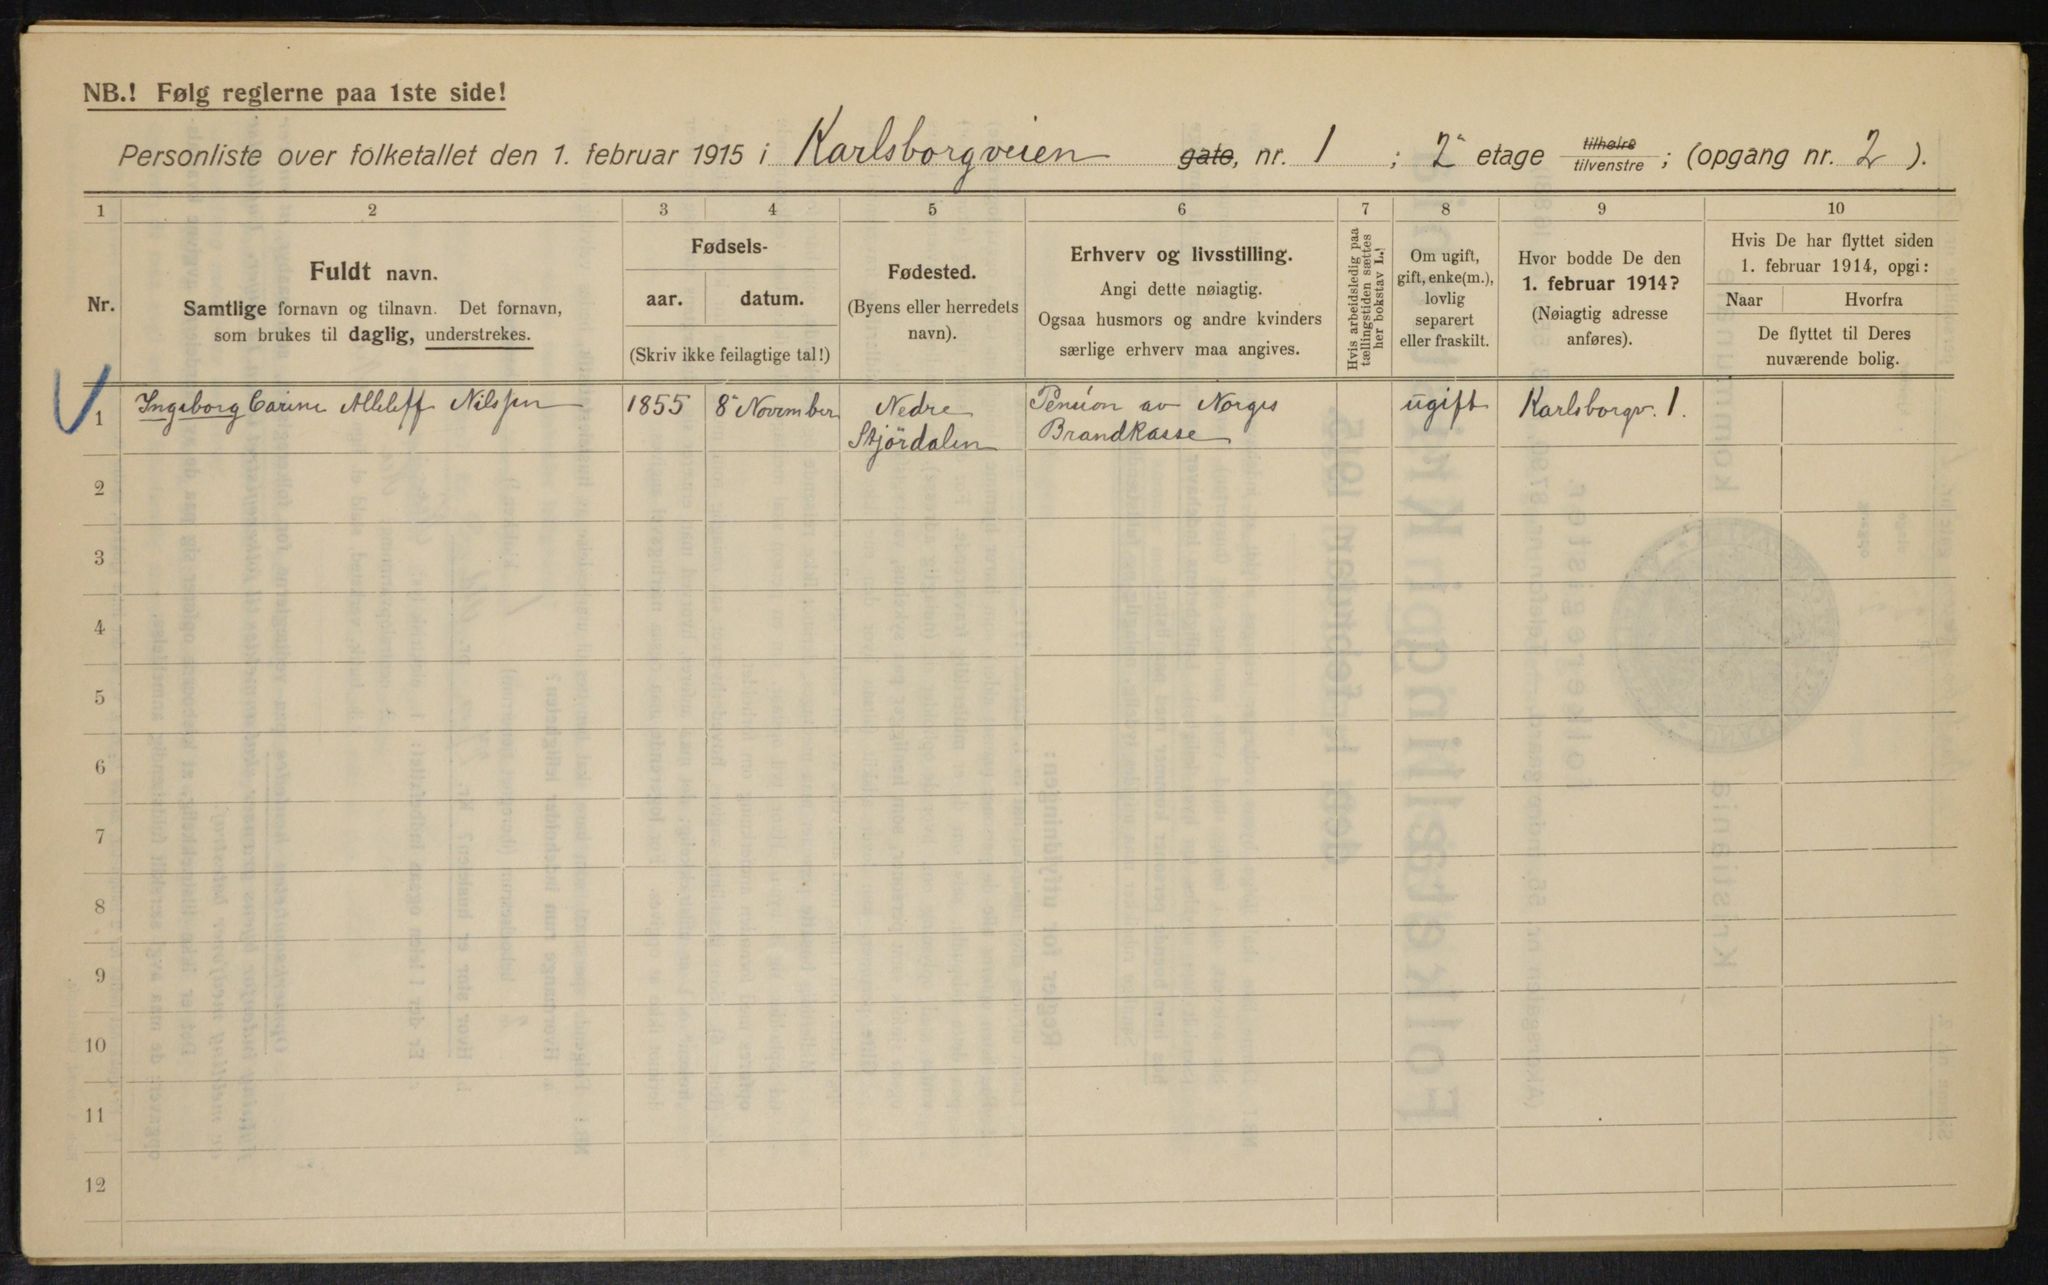 NB.! Følg reglerne paa 1ste side!
Personliste over folketallet den 1. februar 1915 i Karlsborgveien gate, nr. 1 ; 2. etage tilhøire/tilvenstre ; (opgang nr. 2 ).
1 2 3 4 5 6 7 8 9 10
Nr.
Fuldt navn.
Samtlige fornavn og tilnavn. Det fornavn,
som brukes til daglig, understrekes.
Fødsels-
aar. datum.
(Skriv ikke feilagtige tal!)
Fødested.
(Byens eller herredets
navn).
Erhverv og livsstilling.
Angi dette nøiagtig.
Ogsaa husmors og andre kvinders
særlige erhverv maa angives.
Hvis arbeidsledig paa
tællingstiden sættes
her bokstav L.!
Om ugift,
gift, enke(m.),
lovlig
separert
eller fraskilt.
Hvor bodde De den
1. februar 1914?
(Nøiagtig adresse
anføres).
Hvis De har flyttet siden
1. februar 1914, opgi:
Naar Hvorfra
De flyttet til Deres
nuværende bolig.
1 Ingeborg Carine Nilssen 1855 8. November Nedre Pension av Norges ugift Karlsborgv. 1.
Stjördalen Brandkasse
2
3
4
5
6
7
8
9
10
11
12